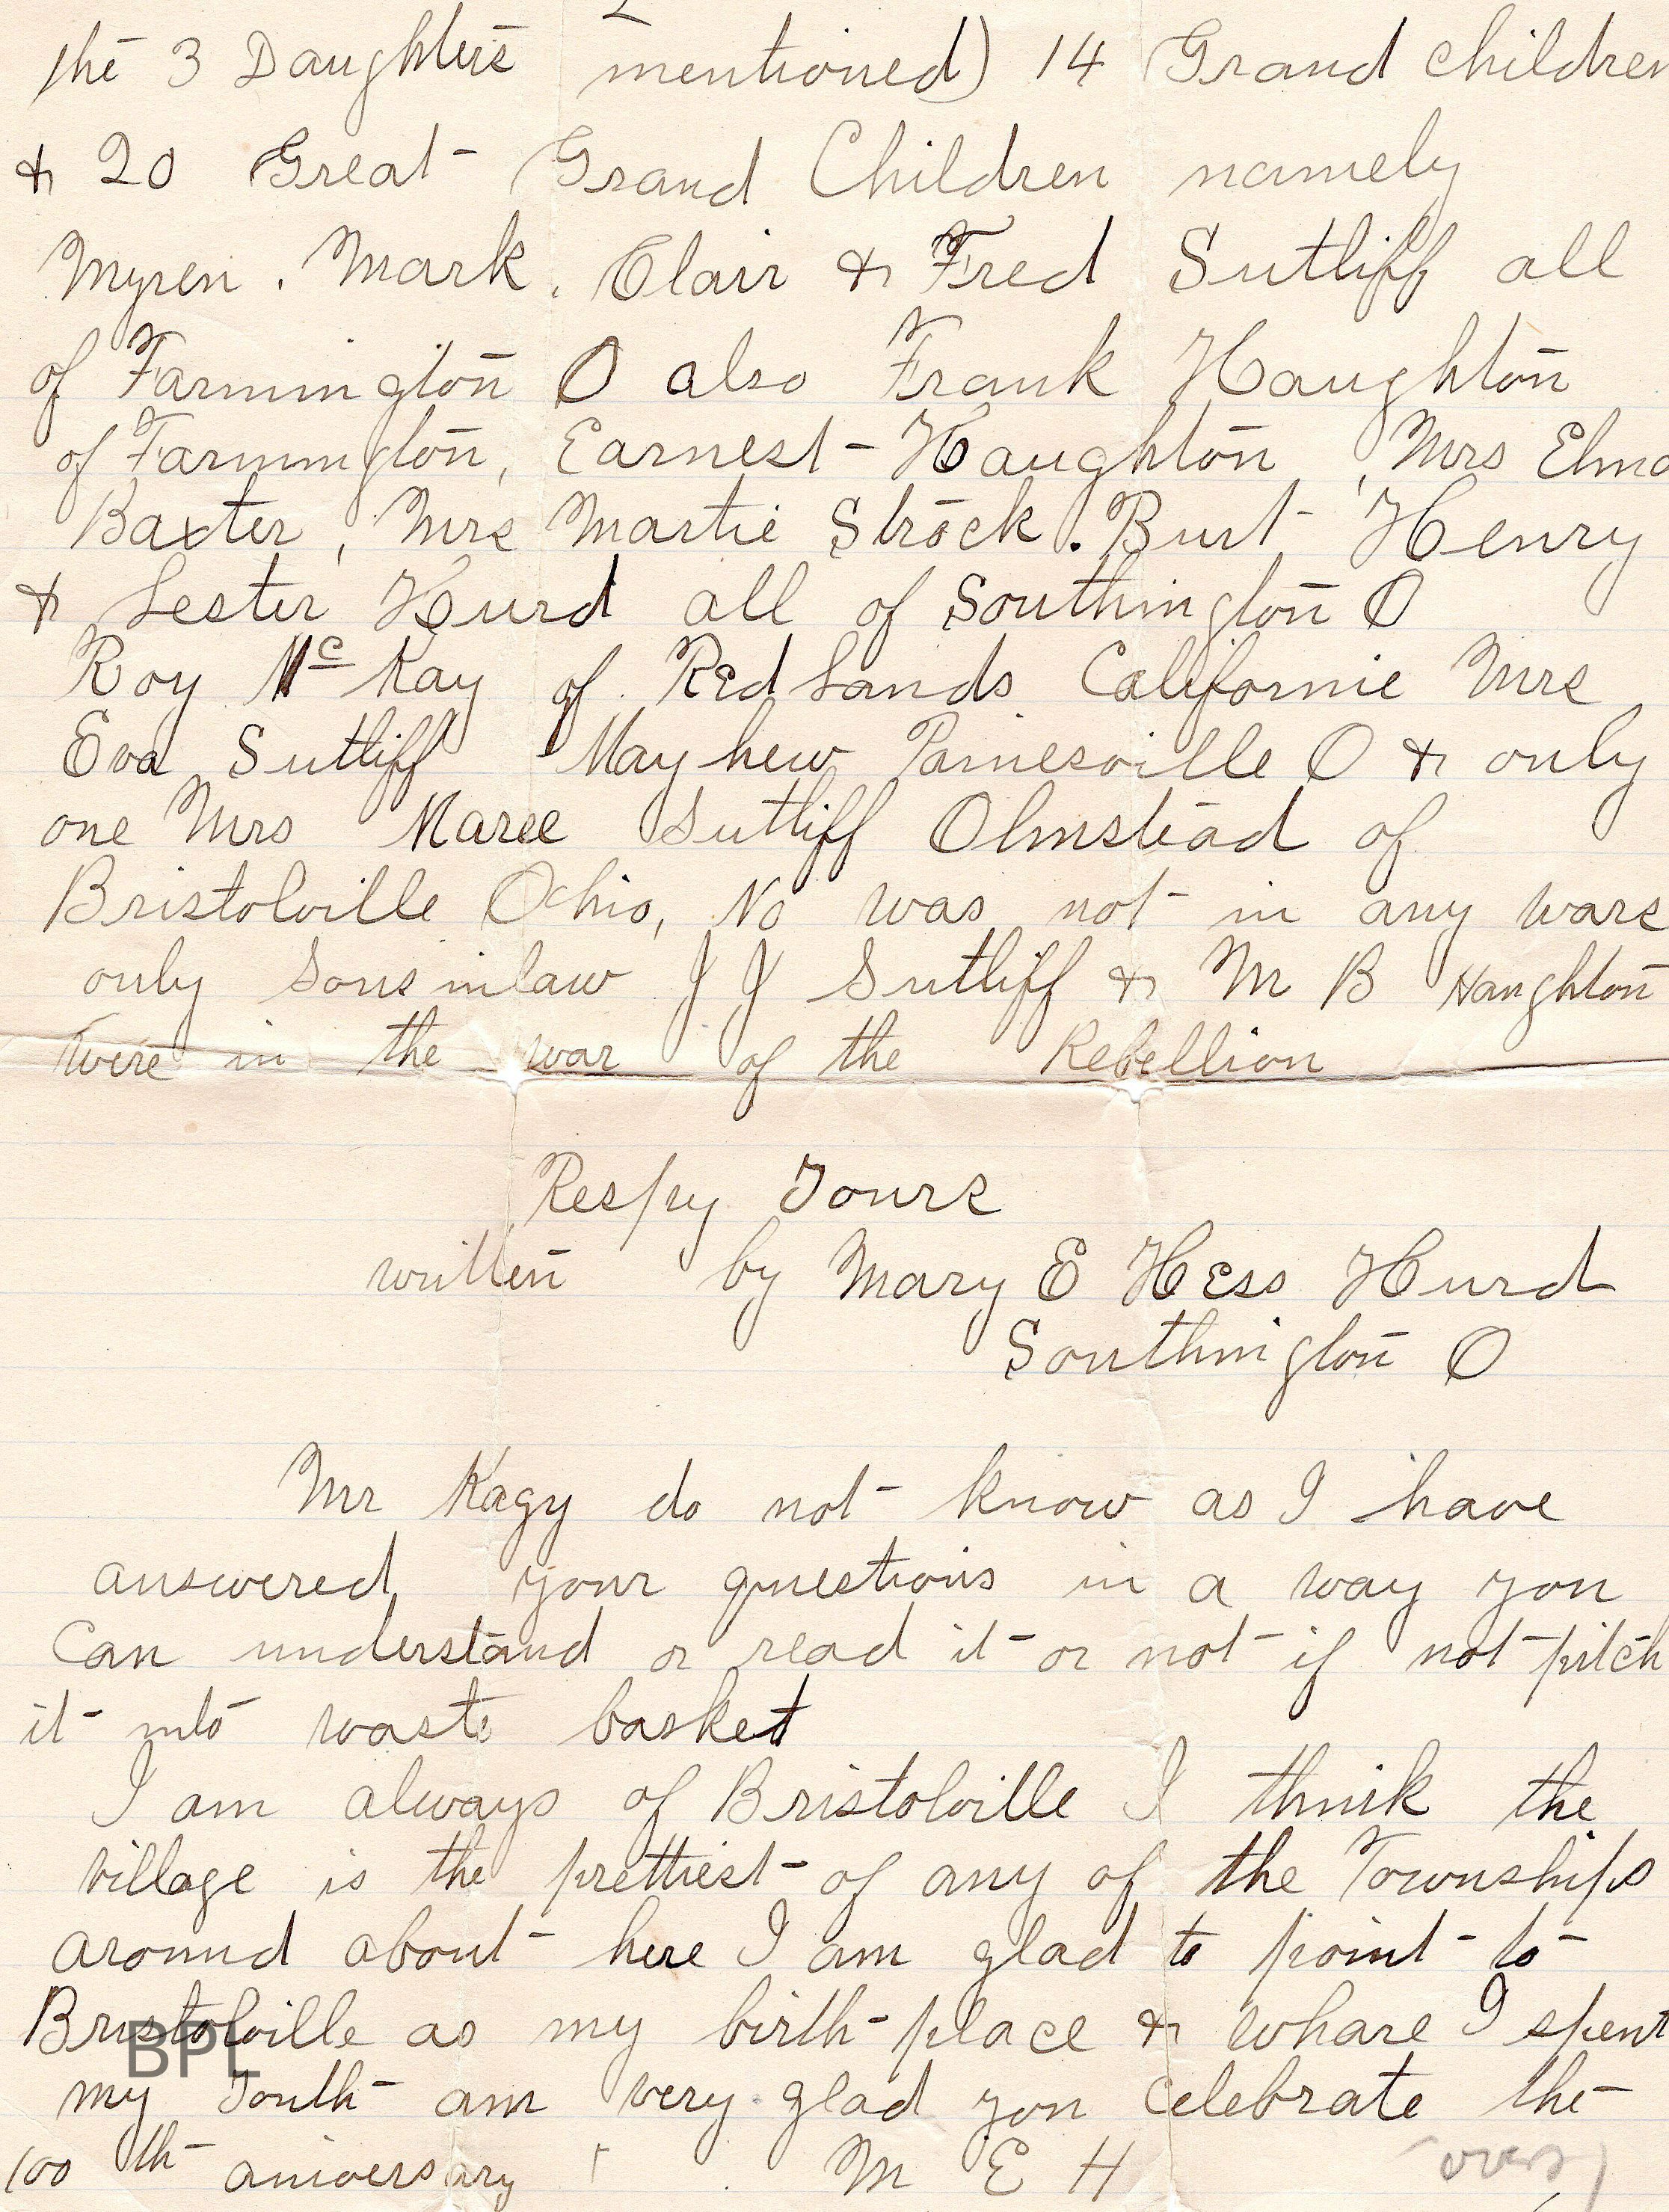 2
the 3 Daughters mentioned) 14 Grand children
& 20 Great Grand Children namely
Myren. Mark. Clair & Fred Sutliff all
of Farmington O also Frank Haughton
of Farmington, Earnest Haughton, Mrs Elmo
Baxter, Mrs Martie Strock. Burt Henry
& Lester Hurd all of Southington O
Roy Mc Kay of Red Lands Californie Mrs
Eva Sutliff Mayhew Painesville O & only
one Mrs Maree Sutliff Olmstead of
Bristolville Ohio, No was not in any wars
only Sons inlaw J J Sutliff & M B Haughton
were in the war of the Rebellion
Respy Yours
written by Mary E Hess Hurd
Southington O
Mr Kagy do not know as I have
answered your questions in a way you
Can understand or read it or not if not pitch
it into waste basket
I am always of Bristolville I think the
village is the prettiest of any of the Townships
around about here I am glad to point to
Bristolville as my birth-place & whare I spent
my Youth am very glad you celebrate the
100th aniversary M E H
over)
BPL